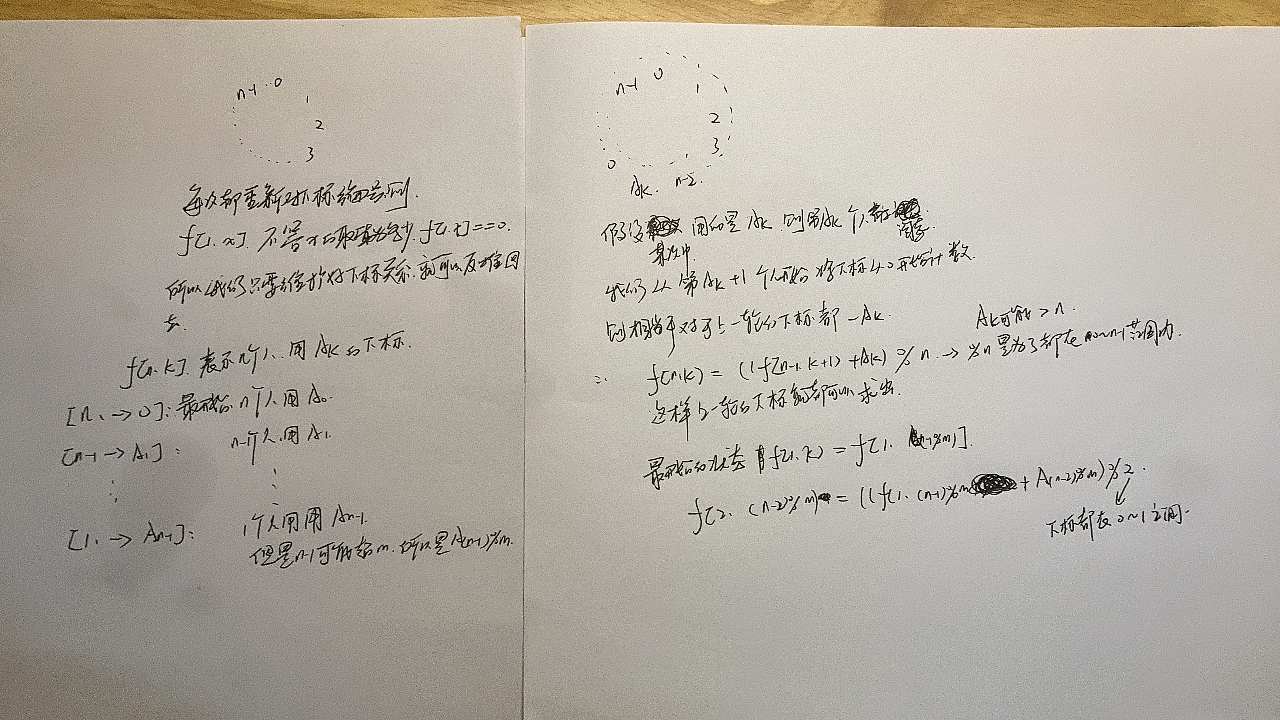 n-1 0
1
2
3
每次都重新对下标编号则.
f[1.x]. 不管x的取值为多少. f[1.x]==0.
所以我们只要维护好下标关系. 就可以反推回
去.
f[n.k]. 表示n个人. 用Ak的下标.
[n. → 0]: 最开始. n个人. 用A₀.
[n-1 → A₁]: n-1个人. 用A₁.
[1. → An-1]: 1个人用用An-1.
但是n-1可能给m. 所以是A(n-1)%m.
n-1 0
1
2
3
0 Ak. n-2.
假设 用的是Ak. 则第Ak个人
某注中 淘汰
我们从第Ak+1个人开始将下标从0开始计数.
则相当于对于上一轮的下标都 -Ak.
Ak可能>n.
∴ f(n.k) = (f[n-1. k+1) + Ak) % n. → %n是为了都在 0~n-1 范围内.
这样上一轮的下标就都可以求出.
最开始的 f(1.k) = f[1. (n-1)%m].
f[2. (n-2)%m) = ((f[1. (n-1)%m + A(n-2)%m) % 2.
下标都在0~1之间.